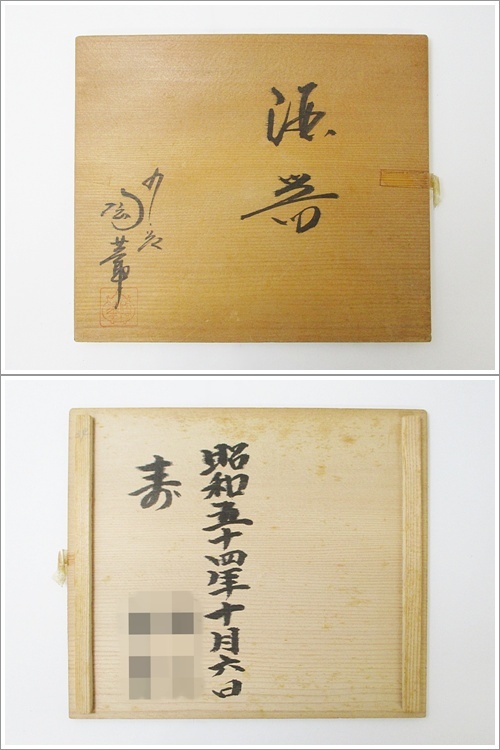 酒器
陶葊
昭和五十四年十月六日
寿